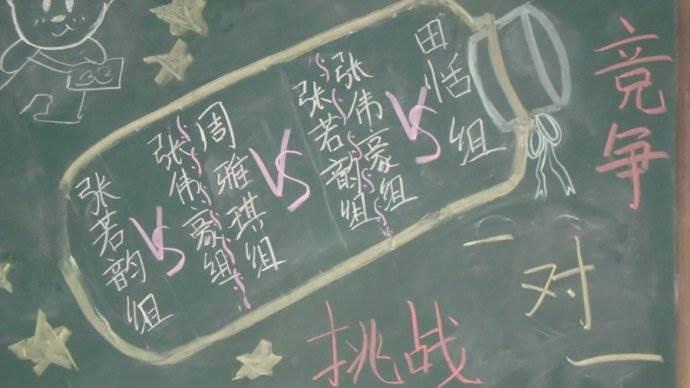 竞争
田恬组
VS
张伟豪组
张若韵组
VS
周雅琪组
张伟豪组
VS
张若韵组
一对一
挑战